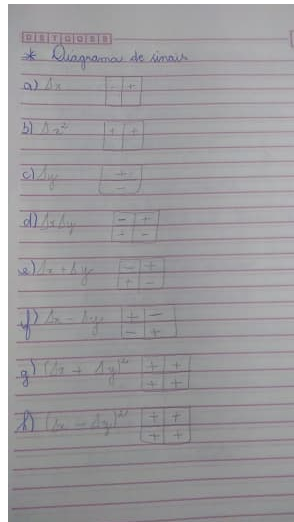 D S T Q Q S S
* Diagrama de sinais
a) Δx - +
b) Δx² + +
c) Δy +
-
d) ΔxΔy - +
+ -
e) Δx + Δy - +
+ -
f) Δx - Δy + -
- +
g) (Δx + Δy)² + +
+ +
h) (Δx - Δy)² + +
+ +